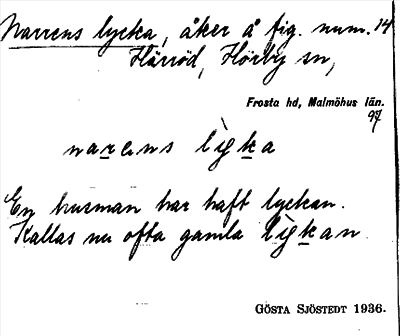 Narrens lycka, åker å fig. num. 14
Härröd, Hörby sn,
Frosta hd, Malmöhus län.
97
narens lỳka
En husman har haft lyckan.
Kallas nu ofta gamla lỳkan.
GÖSTA SJÖSTEDT 1936.